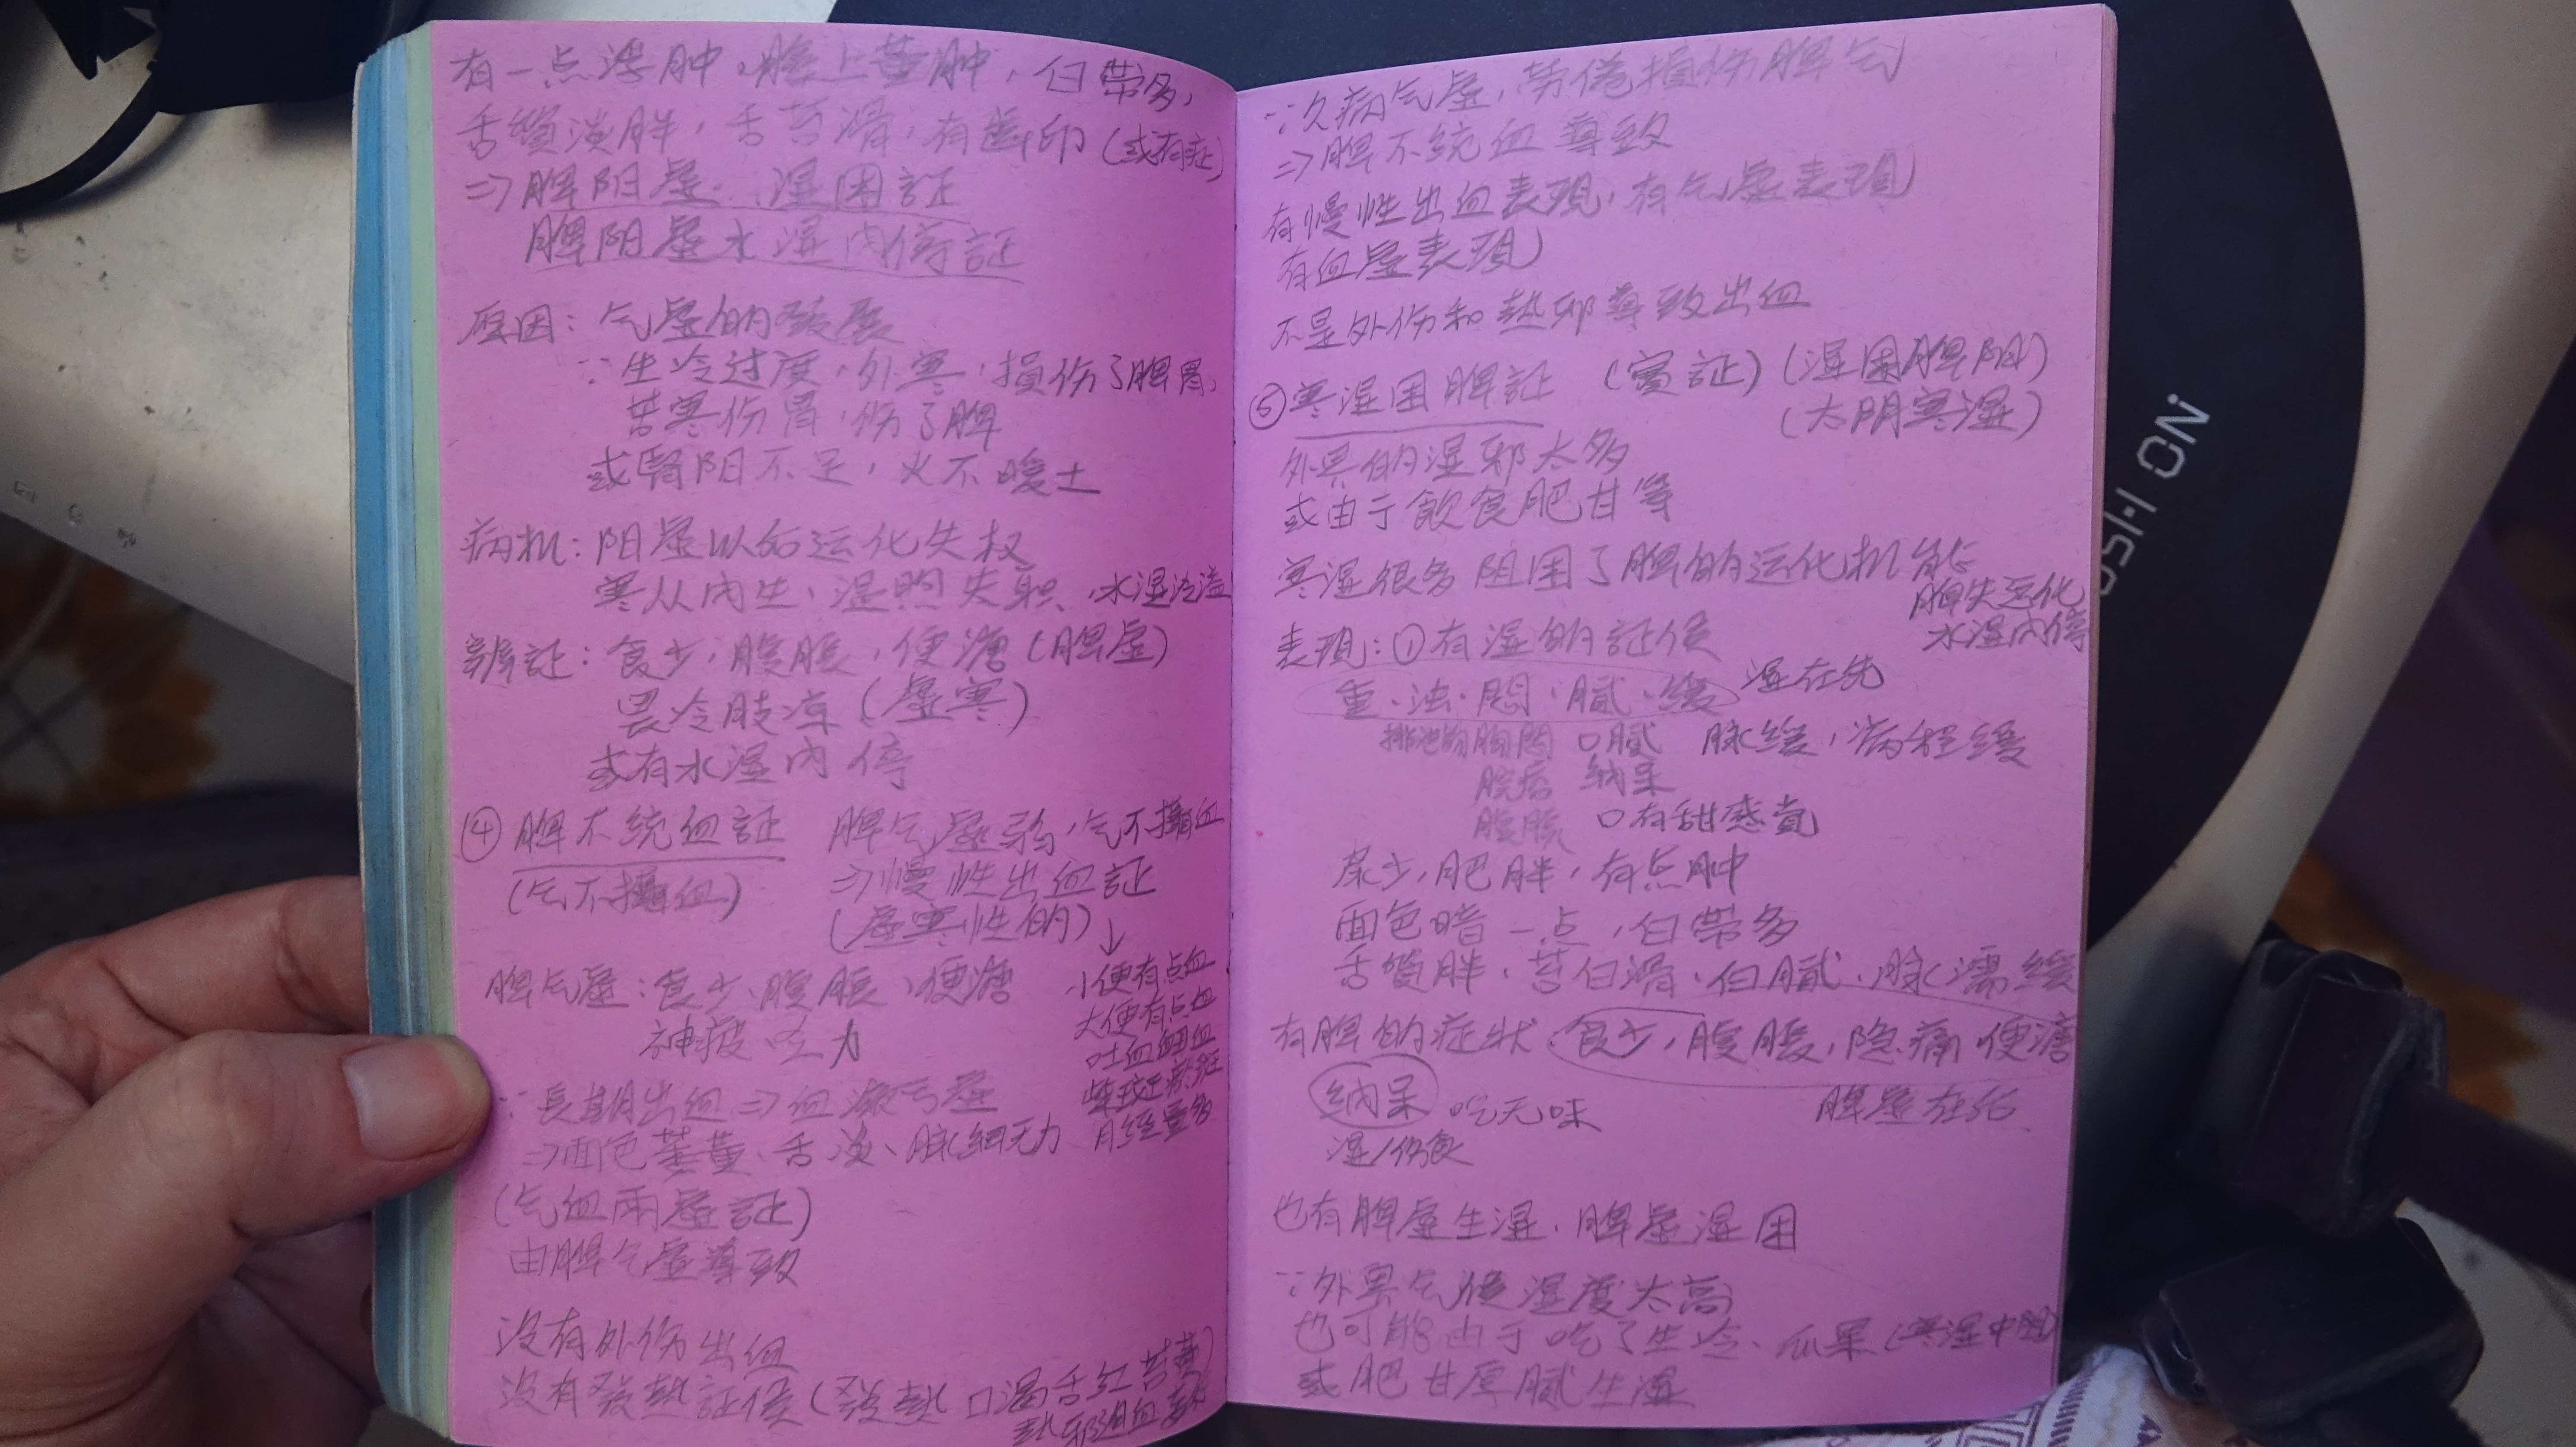 有一点浮肿，腹上苔肿，白带多，
舌質淡胖，舌苔滑，有齒印（或有症）
⇒脾阳虛、湿困証
脾阳虛水湿内停証
原因：气虛的發展
∵生冷过度，外寒，損伤了脾胃，
苦寒伤胃，伤了脾
或腎阳不足，火不暖土
病机：阳虛以后运化失权
寒从内生，温煦失职，水湿泛溢
辨証：食少，腹脹，便溏（脾虛）
畏冷肢凉（虛寒）
或有水湿内停
④脾不統血証 脾气虛弱，气不攝血
（气不攝血） ⇒慢性出血証
（虛寒性的）↓
小便有点血
大便有点血
吐血衄血
紫斑
月经量多
脾气虛：食少、腹脹、便溏
神疲 乏力
∵長期出血⇒血液亏虛
⇒面色萎黄、舌淡、脉細无力
（气血兩虛証）
由脾气虛導致
沒有外伤出血
沒有發熱証候（發熱 口渴舌红苔黄）
熱邪迫血
∵久病气虛，劳倦損伤脾气
⇒脾不统血導致
有慢性出血表現，有气虛表現
有血虛表現
不是外伤和熱邪導致出血
⑤寒湿困脾証 （實証）（湿困脾阳）
（太阴寒湿）
外界的湿邪太多
或由于飲食肥甘等
寒湿很多阻困了脾的运化机能
脾失运化
水湿内停
表現：①有湿的証候
重·浊·悶·膩·缓 湿在先
排泄物 胸悶 口膩 脉缓，病程缓
脘痞 納呆
腹脹 口有甜感覚
尿少，肥胖，有点肿
面色暗一点，白带多
舌質胖，苔白滑，白膩、脉濡缓
有脾的症狀 食少，腹脹，隐痛 便溏
納呆 吃无味 脾虛在后
湿/伤食
也有脾虛生湿、脾虛湿困
∵外界气候湿度太高
也可能由于吃了生冷、瓜果（寒湿中阻）
或肥甘厚膩生湿
PUSH ON